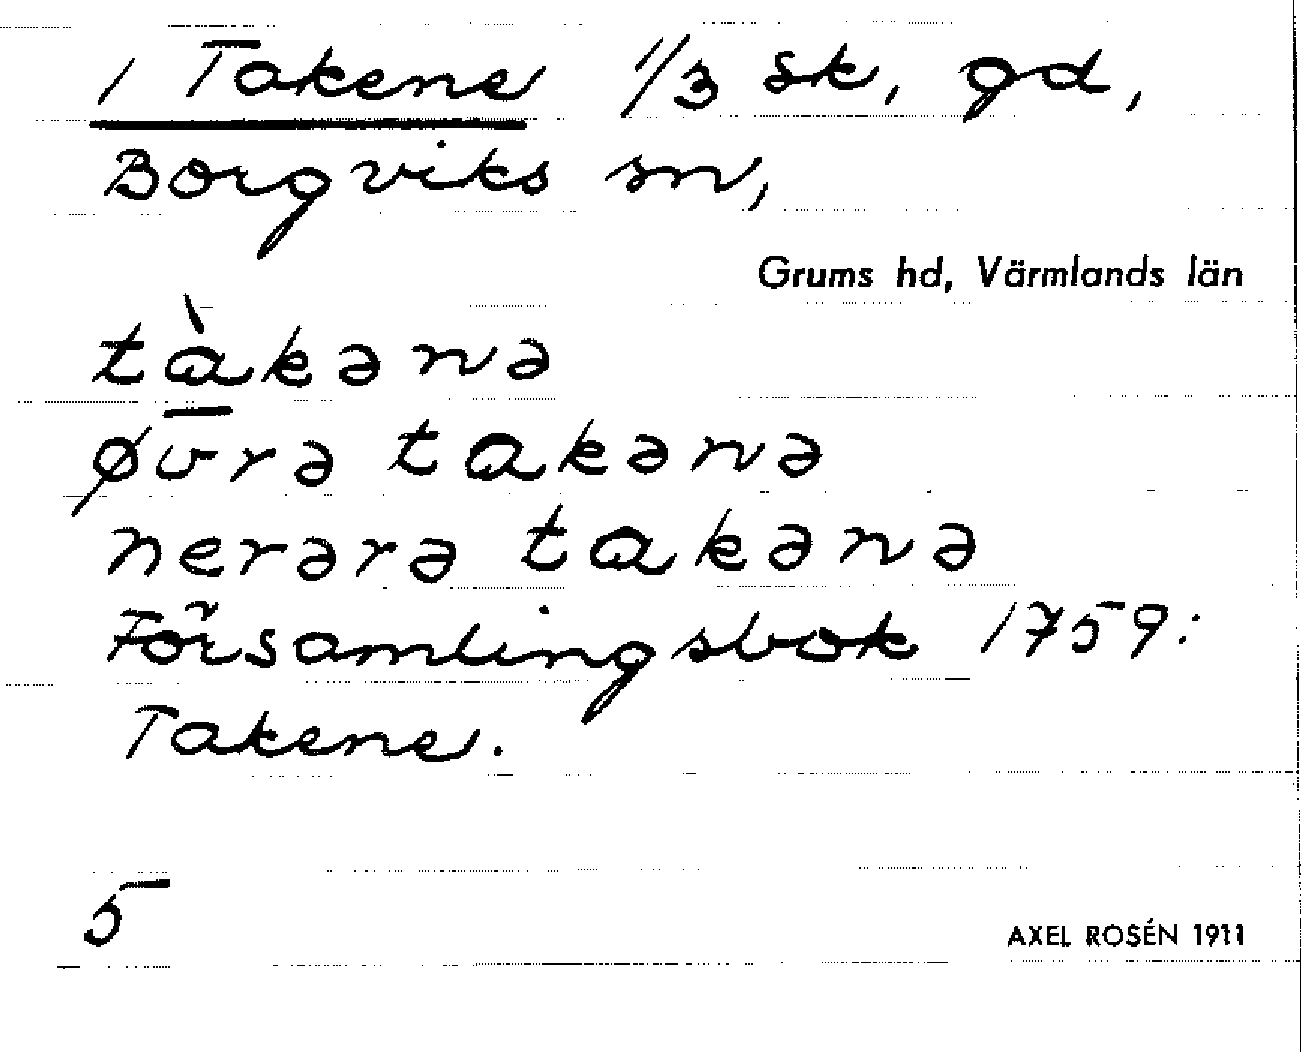 1 Takene 1/3 sk, gd,
Borgviks sn,
Grums hd, Värmlands län
tàkənə
øvrə takənə
nerərə takənə
Församlingsbok 1759:
Takene.
5
AXEL ROSÉN 1911